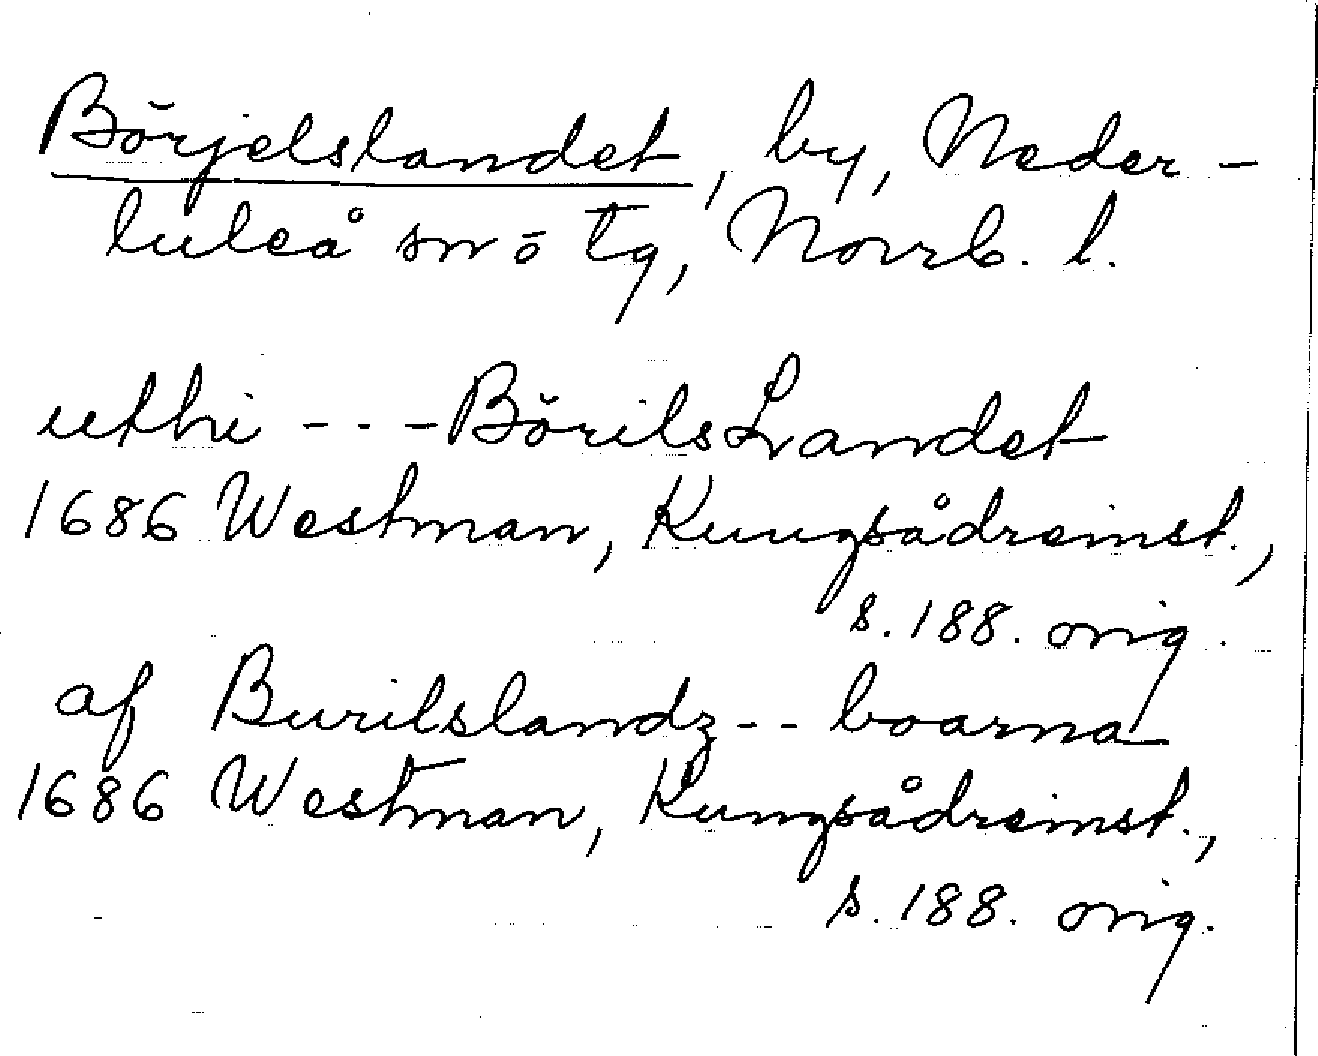 Börjelslandet, by, Neder-
luleå sn o tg, Norrb. l.
uthi --- BörilsLandet
1686 Westman, Kungsådreinst.,
s. 188. orig.
af Burilslandz -- boarna
1686 Westman, Kungsådreinst.,
s. 188. orig.